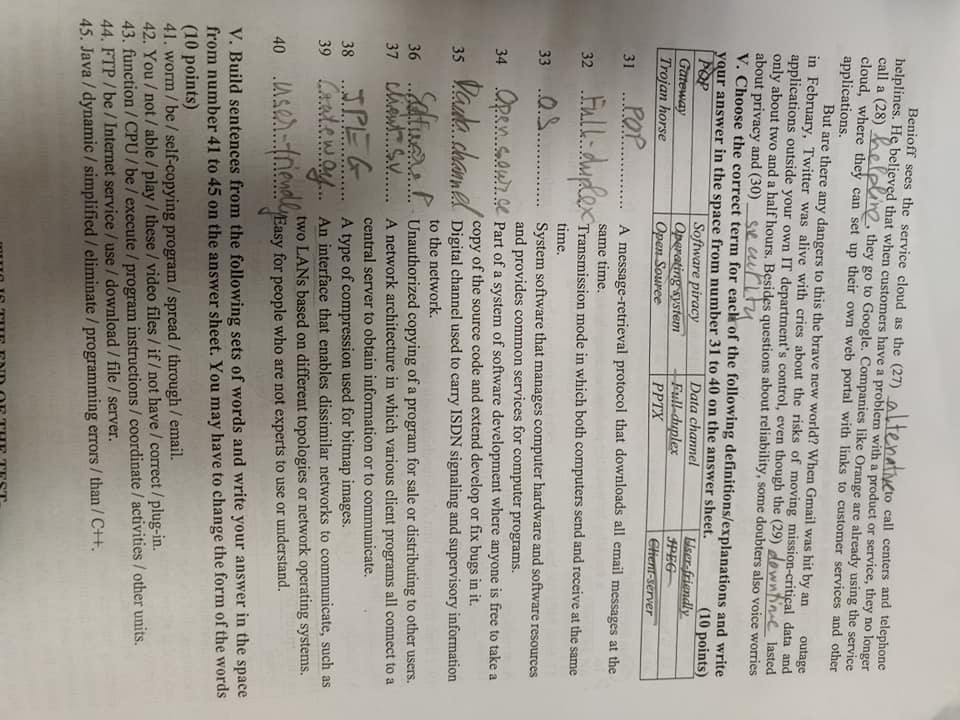 Benioff sees the service cloud as the (27) alternative to call centers and telephone
helplines. He believed that when customers have a problem with a product or service, they no longer
call a (28) helpline, they go to Google. Companies like Orange are already using the service
cloud, where they can set up their own web portal with links to customer services and other
applications.
But are there any dangers to this the brave new world? When Gmail was hit by an outage
in February, Twitter was alive with cries about the risks of moving mission-critical data and
applications outside your own IT department's control, even though the (29) downtime lasted
only about two and a half hours. Besides questions about reliability, some doubters also voice worries
about privacy and (30) security
V. Choose the correct term for each of the following definitions/explanations and write
your answer in the space from number 31 to 40 on the answer sheet. (10 points)
POP Software piracy Data channel User-friendly
Gateway Operating system Full-duplex JPEG
Trojan horse Open Source PPTX Client-server
31 POP A message-retrieval protocol that downloads all email messages at the
same time.
32 Full-duplex Transmission mode in which both computers send and receive at the same
time.
33 OS System software that manages computer hardware and software resources
and provides common services for computer programs.
34 Open source Part of a system of software development where anyone is free to take a
copy of the source code and extend develop or fix bugs in it.
35 Data channel Digital channel used to carry ISDN signaling and supervisory information
to the network.
36 Software P Unauthorized copying of a program for sale or distributing to other users.
37 Client SV A network architecture in which various client programs all connect to a
central server to obtain information or to communicate.
38 JPEG A type of compression used for bitmap images.
39 Gateway An interface that enables dissimilar networks to communicate, such as
two LANs based on different topologies or network operating systems.
40 user-friendly Easy for people who are not experts to use or understand.
V. Build sentences from the following sets of words and write your answer in the space
from number 41 to 45 on the answer sheet. You may have to change the form of the words
(10 points)
41. worm / be / self-copying program / spread / through / email.
42. You / not / able / play / these / video files / if / not have / correct / plug-in.
43. function / CPU / be / execute / program instructions / coordinate / activities / other units.
44. FTP / be / Internet service / use / download / file / server.
45. Java / dynamic / simplified / eliminate / programming errors / than / C++.
THIS IS THE END OF THE TEST